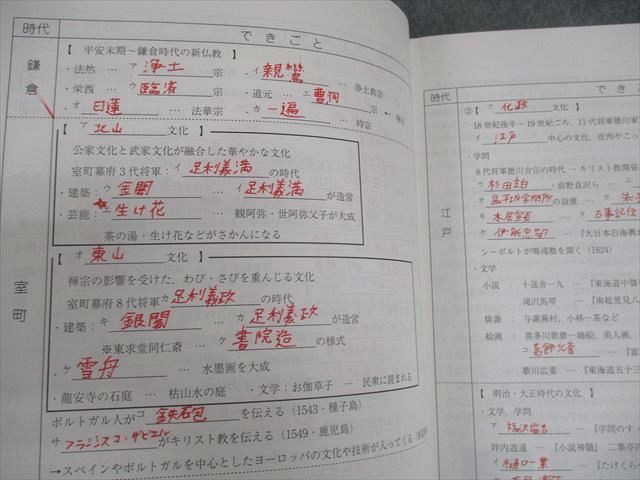 時代
できごと
鎌倉
【 平安末期〜鎌倉時代の新仏教 】
・法然 … ア 浄土 宗 ・イ 親鸞 … 浄土真宗
・栄西 … ウ 臨済 宗 ・道元 … エ 曹洞 宗
・オ 日蓮 … 法華宗 ・カ 一遍 … 時宗
室町
【 ア 北山 文化 】
公家文化と武家文化が融合した華やかな文化
室町幕府3代将軍：イ 足利義満 の時代
・建築：ウ 金閣 … イ 足利義満 が造営
・芸能：エ 生け花 … 観阿弥・世阿弥父子が大成
茶の湯・生け花などがさかんになる
【 オ 東山 文化 】
禅宗の影響を受けた，わび・さびを重んじる文化
室町幕府8代将軍カ 足利義政 の時代
・建築：キ 銀閣 … カ 足利義政 が造営
※東求堂同仁斎 … ク 書院造 の様式
・ケ 雪舟 … 水墨画を大成
・龍安寺の石庭 … 枯山水の庭 ・文学：お伽草子 … 民衆に読まれる
ポルトガル人がコ 鉄砲 を伝える（1543・種子島）
サ フランシスコ・ザビエル がキリスト教を伝える（1549・鹿児島）
→スペインやポルトガルを中心としたヨーロッパの文化や技術が入ってくる
時代
でき
江戸
② 【 ア 化政 文化 】
18世紀後半〜19世紀ごろ，11代将軍徳川家
イ 江戸 中心の文化，皮肉やこっ
・学問
8代将軍徳川吉宗の時代 … キリスト教関係
ウ 杉田玄白 ・前野良沢ら …
オ 昌平坂学問所 の設置 … カ
キ 本居宣長 … ク 古事記伝
ケ 伊能忠敬 … 『大日本沿海輿
シーボルトが鳴滝塾を開く（1824）
・文学
小説 ： 十返舎一九 … 『東海道中膝
滝沢馬琴 … 『南総里見八
俳諧 ： 与謝蕪村，小林一茶など
絵画 ： 喜多川歌麿…錦絵，美人画，
コ 葛飾北斎 … 『富
歌川広重 … 『東海道五十三
【 明治・大正時代の文化 】
・文学，学問
ア 福沢諭吉 … 『学問のす
坪内逍遥 … 『小説神髄』 二葉亭
イ 樋口一葉 … 『たけくら